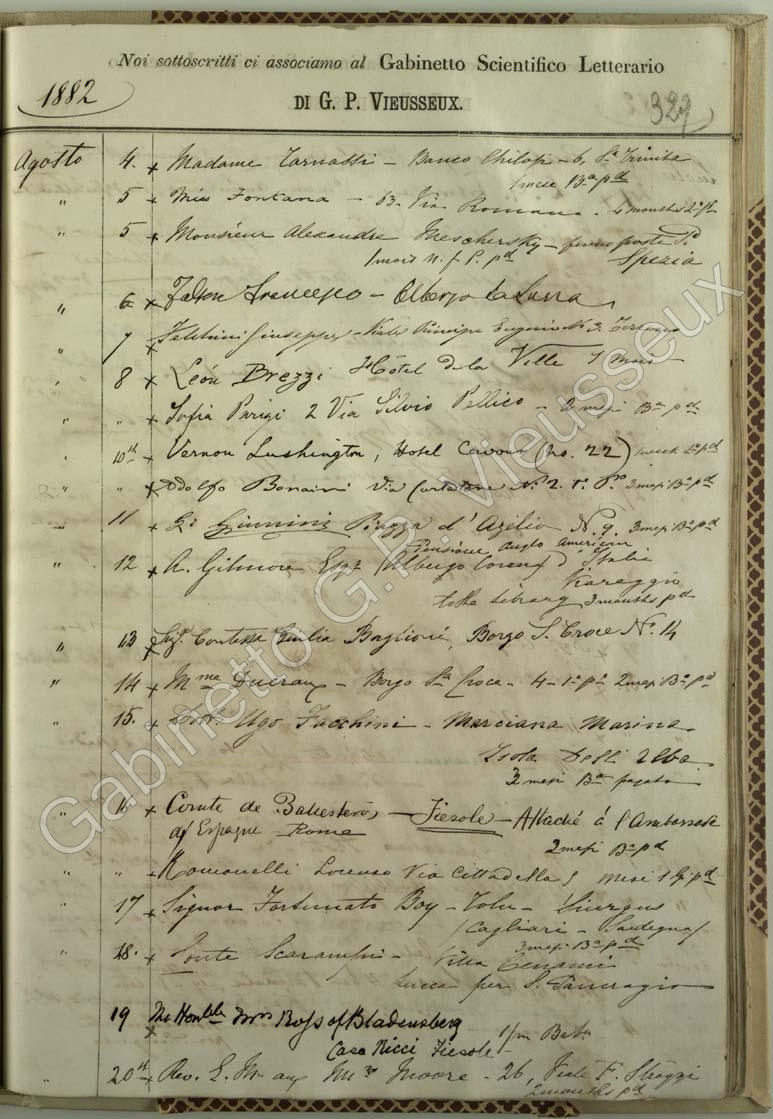 Noi sottoscritti ci associamo al Gabinetto Scientifico Letterario
DI G. P. VIEUSSEUX.
1882
327
Agosto 4. Madame Tarnassi - Banco Philop - 6, Sta Trinita
1 mese Ba pd
" 5 Miss Fontana - 63. Via Romana. 4 months
" 5 Monsieur Alexandre Meschersky - fermo posta
1 mois n. f. P. pd Spezia
" 6 Francesco - Albergo la Luna
" 7 Giuseppe - Viale Principe Eugenio N 3.
" 8 León Brezzi Hôtel de la Ville 1 mois
" " Sofia Parigi 2 Via Silvio Pellico - 2 mesi Ba pd
" 10th Vernon Lushington, Hotel Cavour (No. 22) 1 week pd
" " Adolfo Bonaini Via Curtatone No 2. To Po 3 mesi Ba pd
" 11 Giunini Piazza d'Azeglio N. 9. 3 mesi Ba pd
Pensione Anglo Americain
" 12 A. Gilmore Esqr (Albergo d'Italie
Viareggio
to the Library 3 months pd
" 13 Sigra Contessa Giulia Baglioni, Borgo S. Croce No. 14
" 14 Mme Ducraux - Borgo Sta Croce - 4 - 1o po 2 mesi Ba pd
" 15. Dott. Ugo Facchini - Marciana Marina
Isola Dell' Elba
3 mesi Ba pagato
" 16 Comte de Ballesteros - Fiesole - Attaché á l'Ambassade
d'Espagne Rome
2 mesi Ba pd
" " Romanelli Lorenzo Via Cittadella 5 mesi 1 pd
" 17 Signor Fortunato Boy - Tolu - Siurgus
(Cagliari - Sardegna)
3 mesi Ba pd
" 18. Conte Scarampi - Villa Cenami
Lucca per S. Pancrazio
19 The Honble Mrs Ross of Bladensberg
Casa Ricci Fiesole - 1/m
" 20th Rev. E. M. and Mrs Moore - 26, Viale F. Strozzi
2 months pd
Gabinetto G.P. Vieusseux